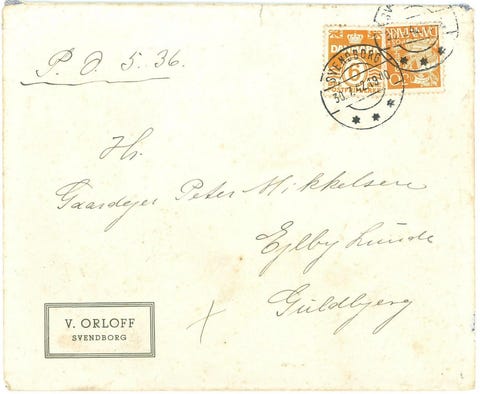 P. O. 5. 36.
DANMARK
SVENDBORG
Hr.
Gaardejer Peter Mikkelsen
Ejlby Lunde
Guldbjerg
V. ORLOFF
SVENDBORG